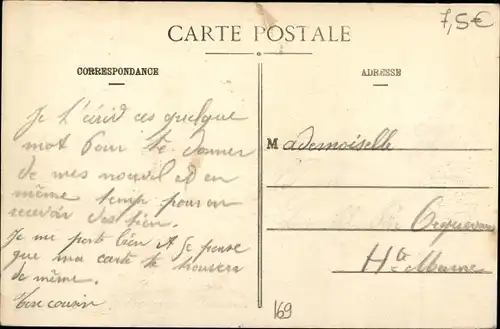 CARTE POSTALE
7,5€
CORRESPONDANCE
ADRESSE
Je t'écrid ces quelque
mot Pour te donner
de mes nouvel et en
même temp pour en
recevoir des tien.
Je me porte bien et Je pense
que ma carte te trouvera
de même.
Ton cousin
Mademoiselle
Hte Marne
169